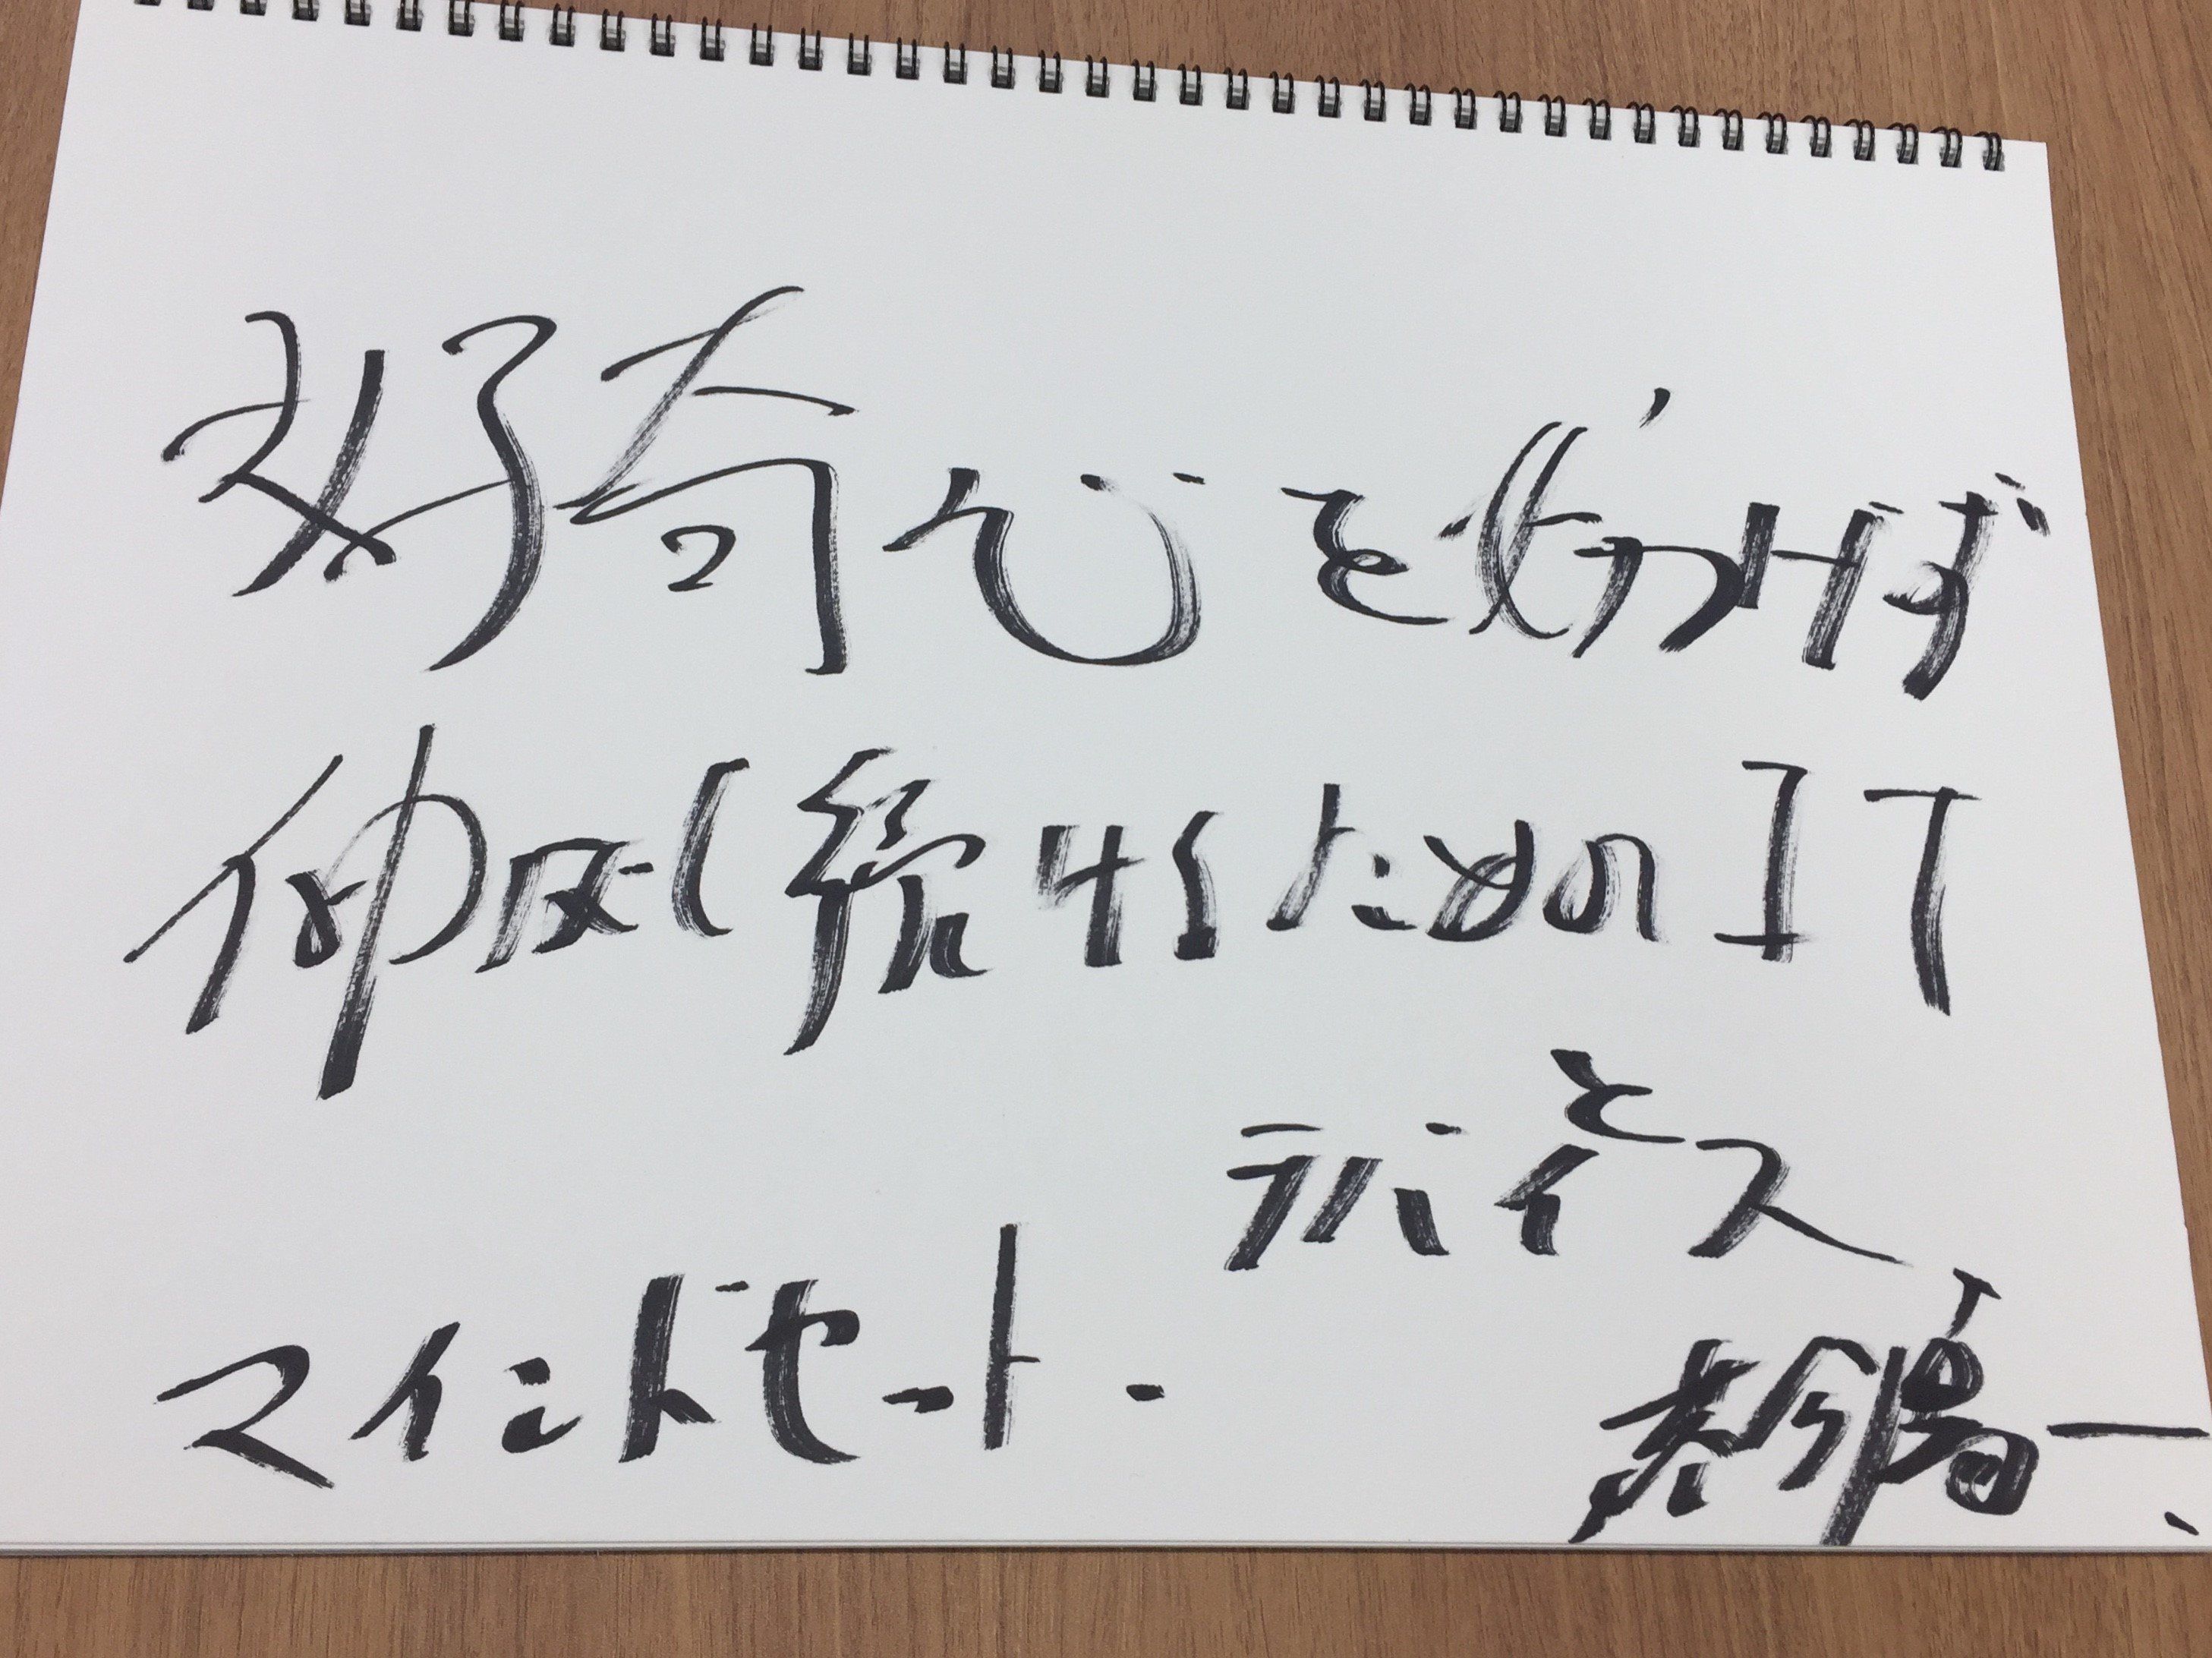 好奇心を妨げず
伸ばし続けるためのIT
と
デバイス
マインドセット.